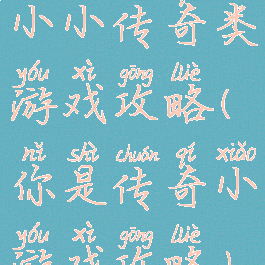 小小传奇类
yóu xì gōng lüè
游戏攻略(
nǐ shì chuán qí xiǎo
你是传奇小
yóu xì gōng lüè
游戏攻略)